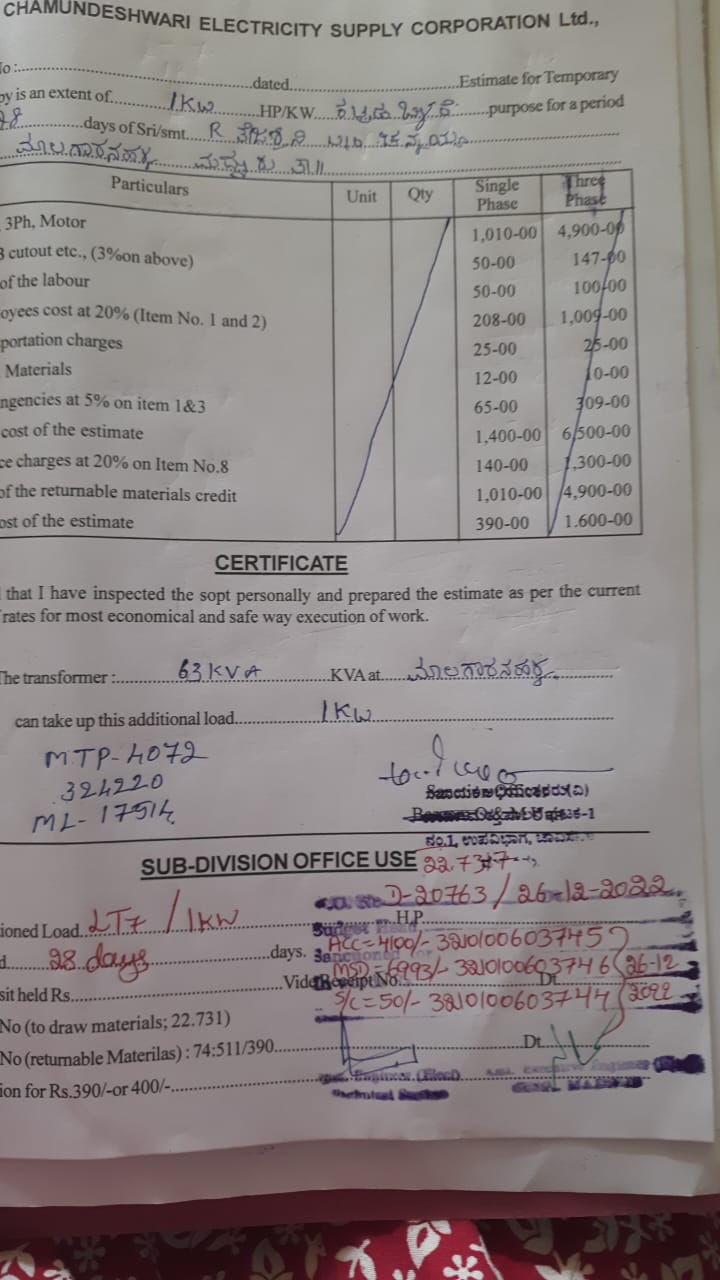 CHAMUNDESHWARI ELECTRICITY SUPPLY CORPORATION Ltd.,
No :..............dated..............Estimate for Temporary
py is an extent of 1KW HP/KW purpose for a period
28 days of Sri/smt. R
Particulars Unit Qty Single Phase Three Phase
3Ph, Motor 1,010-00 4,900-00
3 cutout etc., (3%on above) 50-00 147-00
of the labour 50-00 100-00
oyees cost at 20% (Item No. 1 and 2) 208-00 1,009-00
portation charges 25-00 25-00
Materials 12-00 10-00
ngencies at 5% on item 1&3 65-00 309-00
cost of the estimate 1,400-00 6,500-00
ce charges at 20% on Item No.8 140-00 1,300-00
of the returnable materials credit 1,010-00 4,900-00
ost of the estimate 390-00 1.600-00
CERTIFICATE
that I have inspected the sopt personally and prepared the estimate as per the current
rates for most economical and safe way execution of work.
The transformer : 63 KVA KVA at
can take up this additional load 1KW
MTP-4072
324220
ML-17514
SUB-DIVISION OFFICE USE
D-20763/26-12-2022
ioned Load LT7/1KW H.P.
ACC=4100/- 3210100603745
d 28 days days.
MSD=6993/- 3210100603746 26-12 2022
sit held Rs. Vide Receipt No. Dt.
S/C=50/- 3210100603744
No (to draw materials; 22.731)
No (returnable Materilas) : 74:511/390 Dt.
ion for Rs.390/-or 400/-